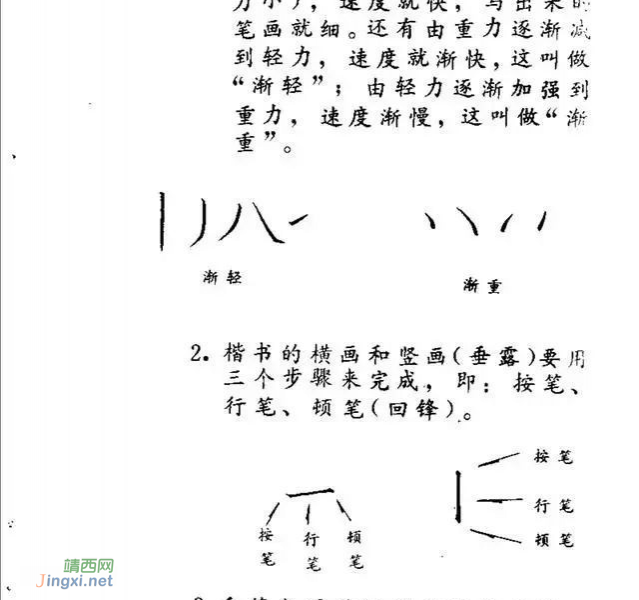 力小），速度就快，写出来的
笔画就细。还有由重力逐渐减
到轻力，速度就渐快，这叫做
“渐轻”；由轻力逐渐加强到
重力，速度渐慢，这叫做“渐
重”。
渐轻
渐重
2.楷书的横画和竖画(垂露)要用
三个步骤来完成，即：按笔、
行笔、顿笔(回锋)。
按笔
行笔
顿笔
按笔
行笔
顿笔
靖西网
Jingxi.net